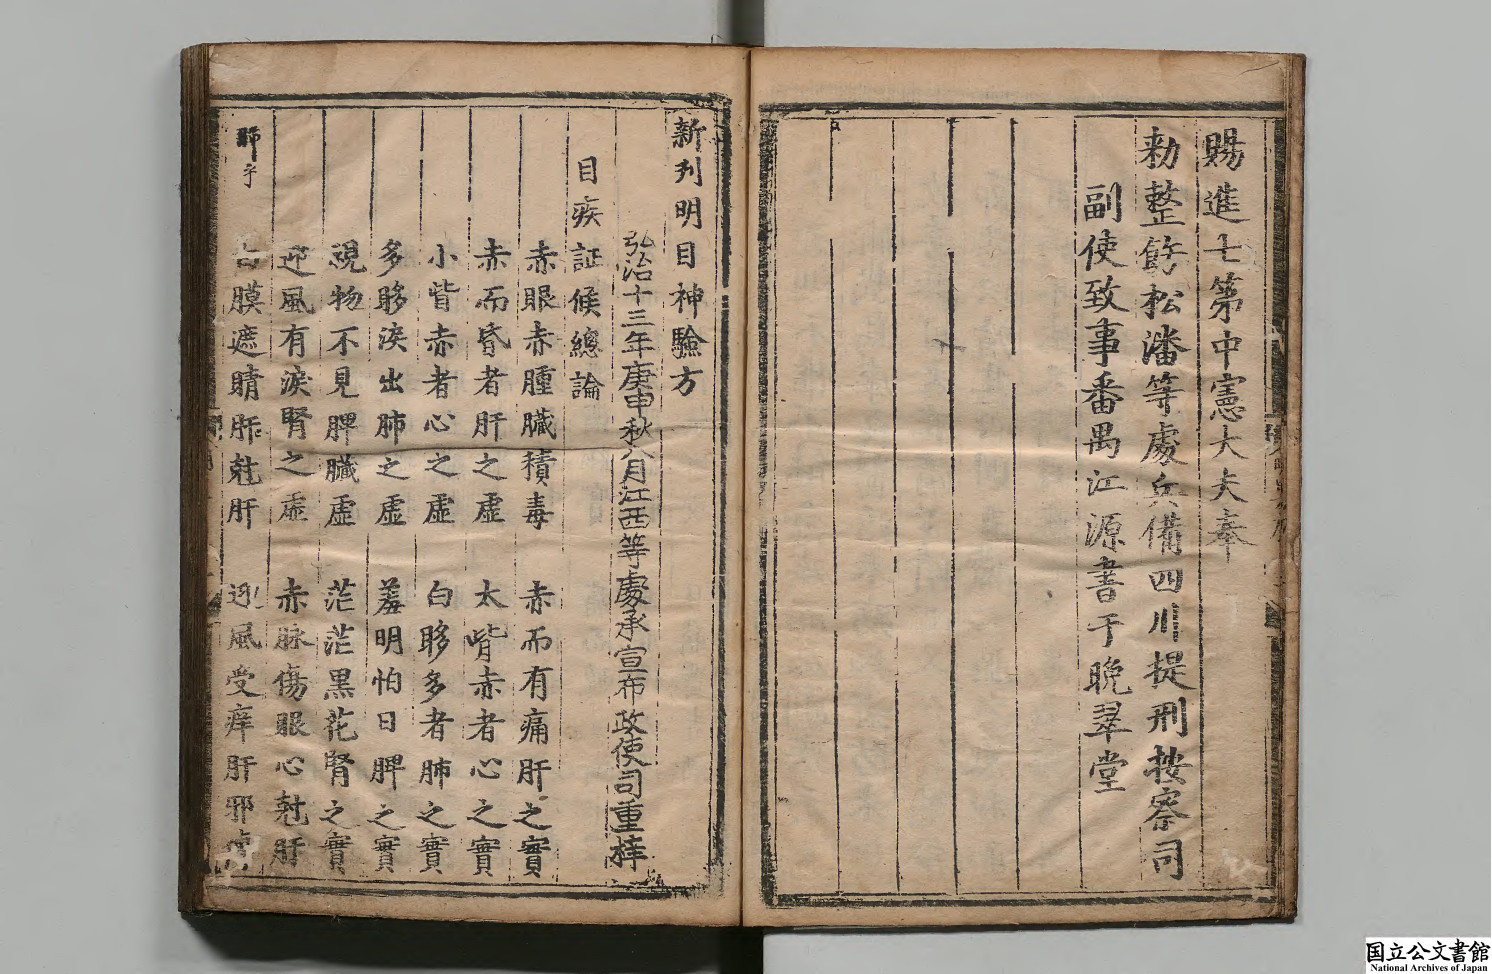 賜進士第中憲大夫奉
勑整飭松潘等處兵備四川提刑按察司
副使致事番禺江源書于晚翠堂
新刋明目神驗方
弘治十三年庚申秋八月江西等處承宣布政使司重梓
目疾証候總論
赤眼赤腫臓積毒 赤而有痛肝之實
赤而昏者肝之虛 太眥赤者心之實
小眥赤者心之虛 白眵多者肺之實
多眵淚出肺之虛 羞明怕日脾之實
視物不見脾臓虛 茫茫黒花腎之實
迎風有淚腎之虛 赤脉傷眼心尅肝
膜遮睛肝尅肝 迎風受痒肝邪
国立公文書館
National Archives of Japan